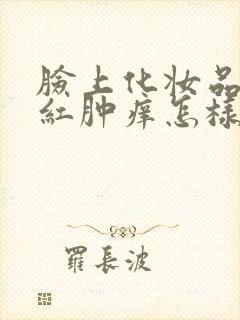 臉上化妝品
紅肿痒怎樣
羅長波